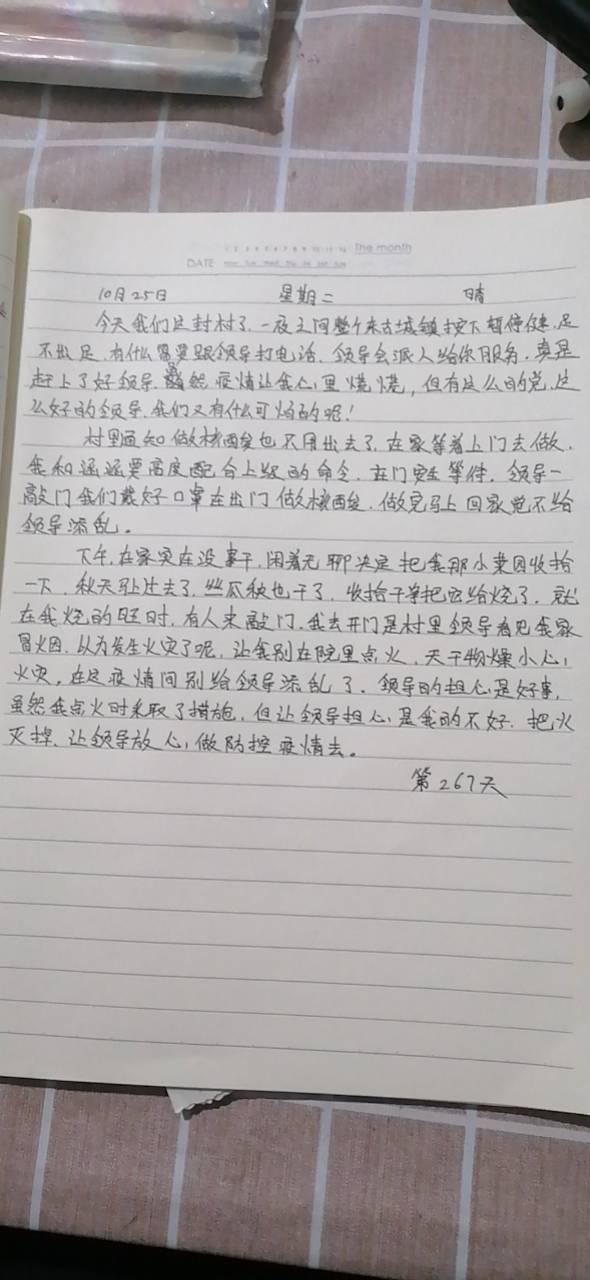 1 2 3 4 5 6 7 8 9 10 11 12 The month
DATE Mon Tue Wed Thu Fri Sat Sun
10月25日 星期二 晴
今天我们这封村了.一夜之间整个东古城镇按下暂停键.足
不出足.有什么需要跟领导打电话.领导会派人给你服务.真是
赶上了好领导.虽然疫情让我心里慌慌,但有这么的党.这
么好的领导.我们又有什么可怕的呢!
村里通知做核酸也不用出去了.在家等着上门去做.
我和涵涵要高度配合上级的命令.在门安生等待.领导一
敲门我们戴好口罩在出门做核酸.做完马上回家觉不给
领导添乱。
下午.在家实在没事干.闲着无聊决定把我那小菜园收拾
一下.秋天马上过去了.丝瓜秧也干了.收拾干净把它给烧了.就
在我烧的旺时.有人来敲门.我去开门是村里领导看见我家
冒烟.以为发生火灾了呢.让我别在院里点火.天干物燥小心
火灾.在这疫情间别给领导添乱了.领导的担心是好事.
虽然我点火时采取了措施.但让领导担心是我的不好.把火
灭掉.让领导放心,做防控疫情去。
第267天